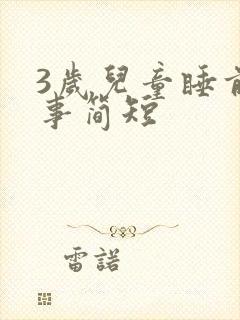 3歲兒童睡前
事简短
雷諾